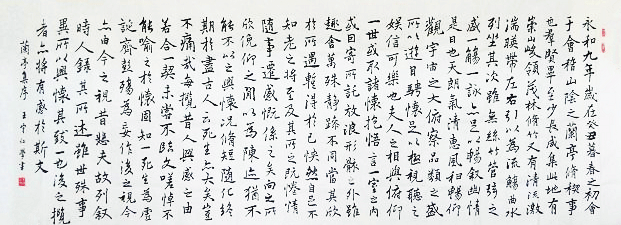 永和九年歲在癸丑暮春之初會
于會稽山陰之蘭亭脩稧事
也羣賢畢至少長咸集此地有
崇山峻領茂林脩竹又有清流激
湍暎帶左右引以為流觴曲水
列坐其次雖無絲竹管弦之
盛一觴一詠亦足以暢敘幽情
是日也天朗氣清惠風和暢仰
觀宇宙之大俯察品類之盛
所以遊目騁懷足以極視聽之
娛信可樂也夫人之相與俯仰
一世或取諸懷抱悟言一室之內
或因寄所託放浪形骸之外雖
趣舍萬殊靜躁不同當其欣
於所遇暫得於己怏然自足不
知老之將至及其所之既惓情
隨事遷感慨係之矣向之所
欣俛仰之閒以為陳迹猶不
能不以之興懷況脩短隨化終
期於盡古人云死生亦大矣豈
不痛哉每攬昔人興感之由
若合一契未嘗不臨文嗟悼不
能喻之於懷固知一死生為虛
誕齊彭殤為妄作後之視今
亦由今之視昔悲夫故列敘
時人錄其所述雖世殊事
異所以興懷其致一也後之攬
者亦將有感於斯文
蘭亭集序 王 書